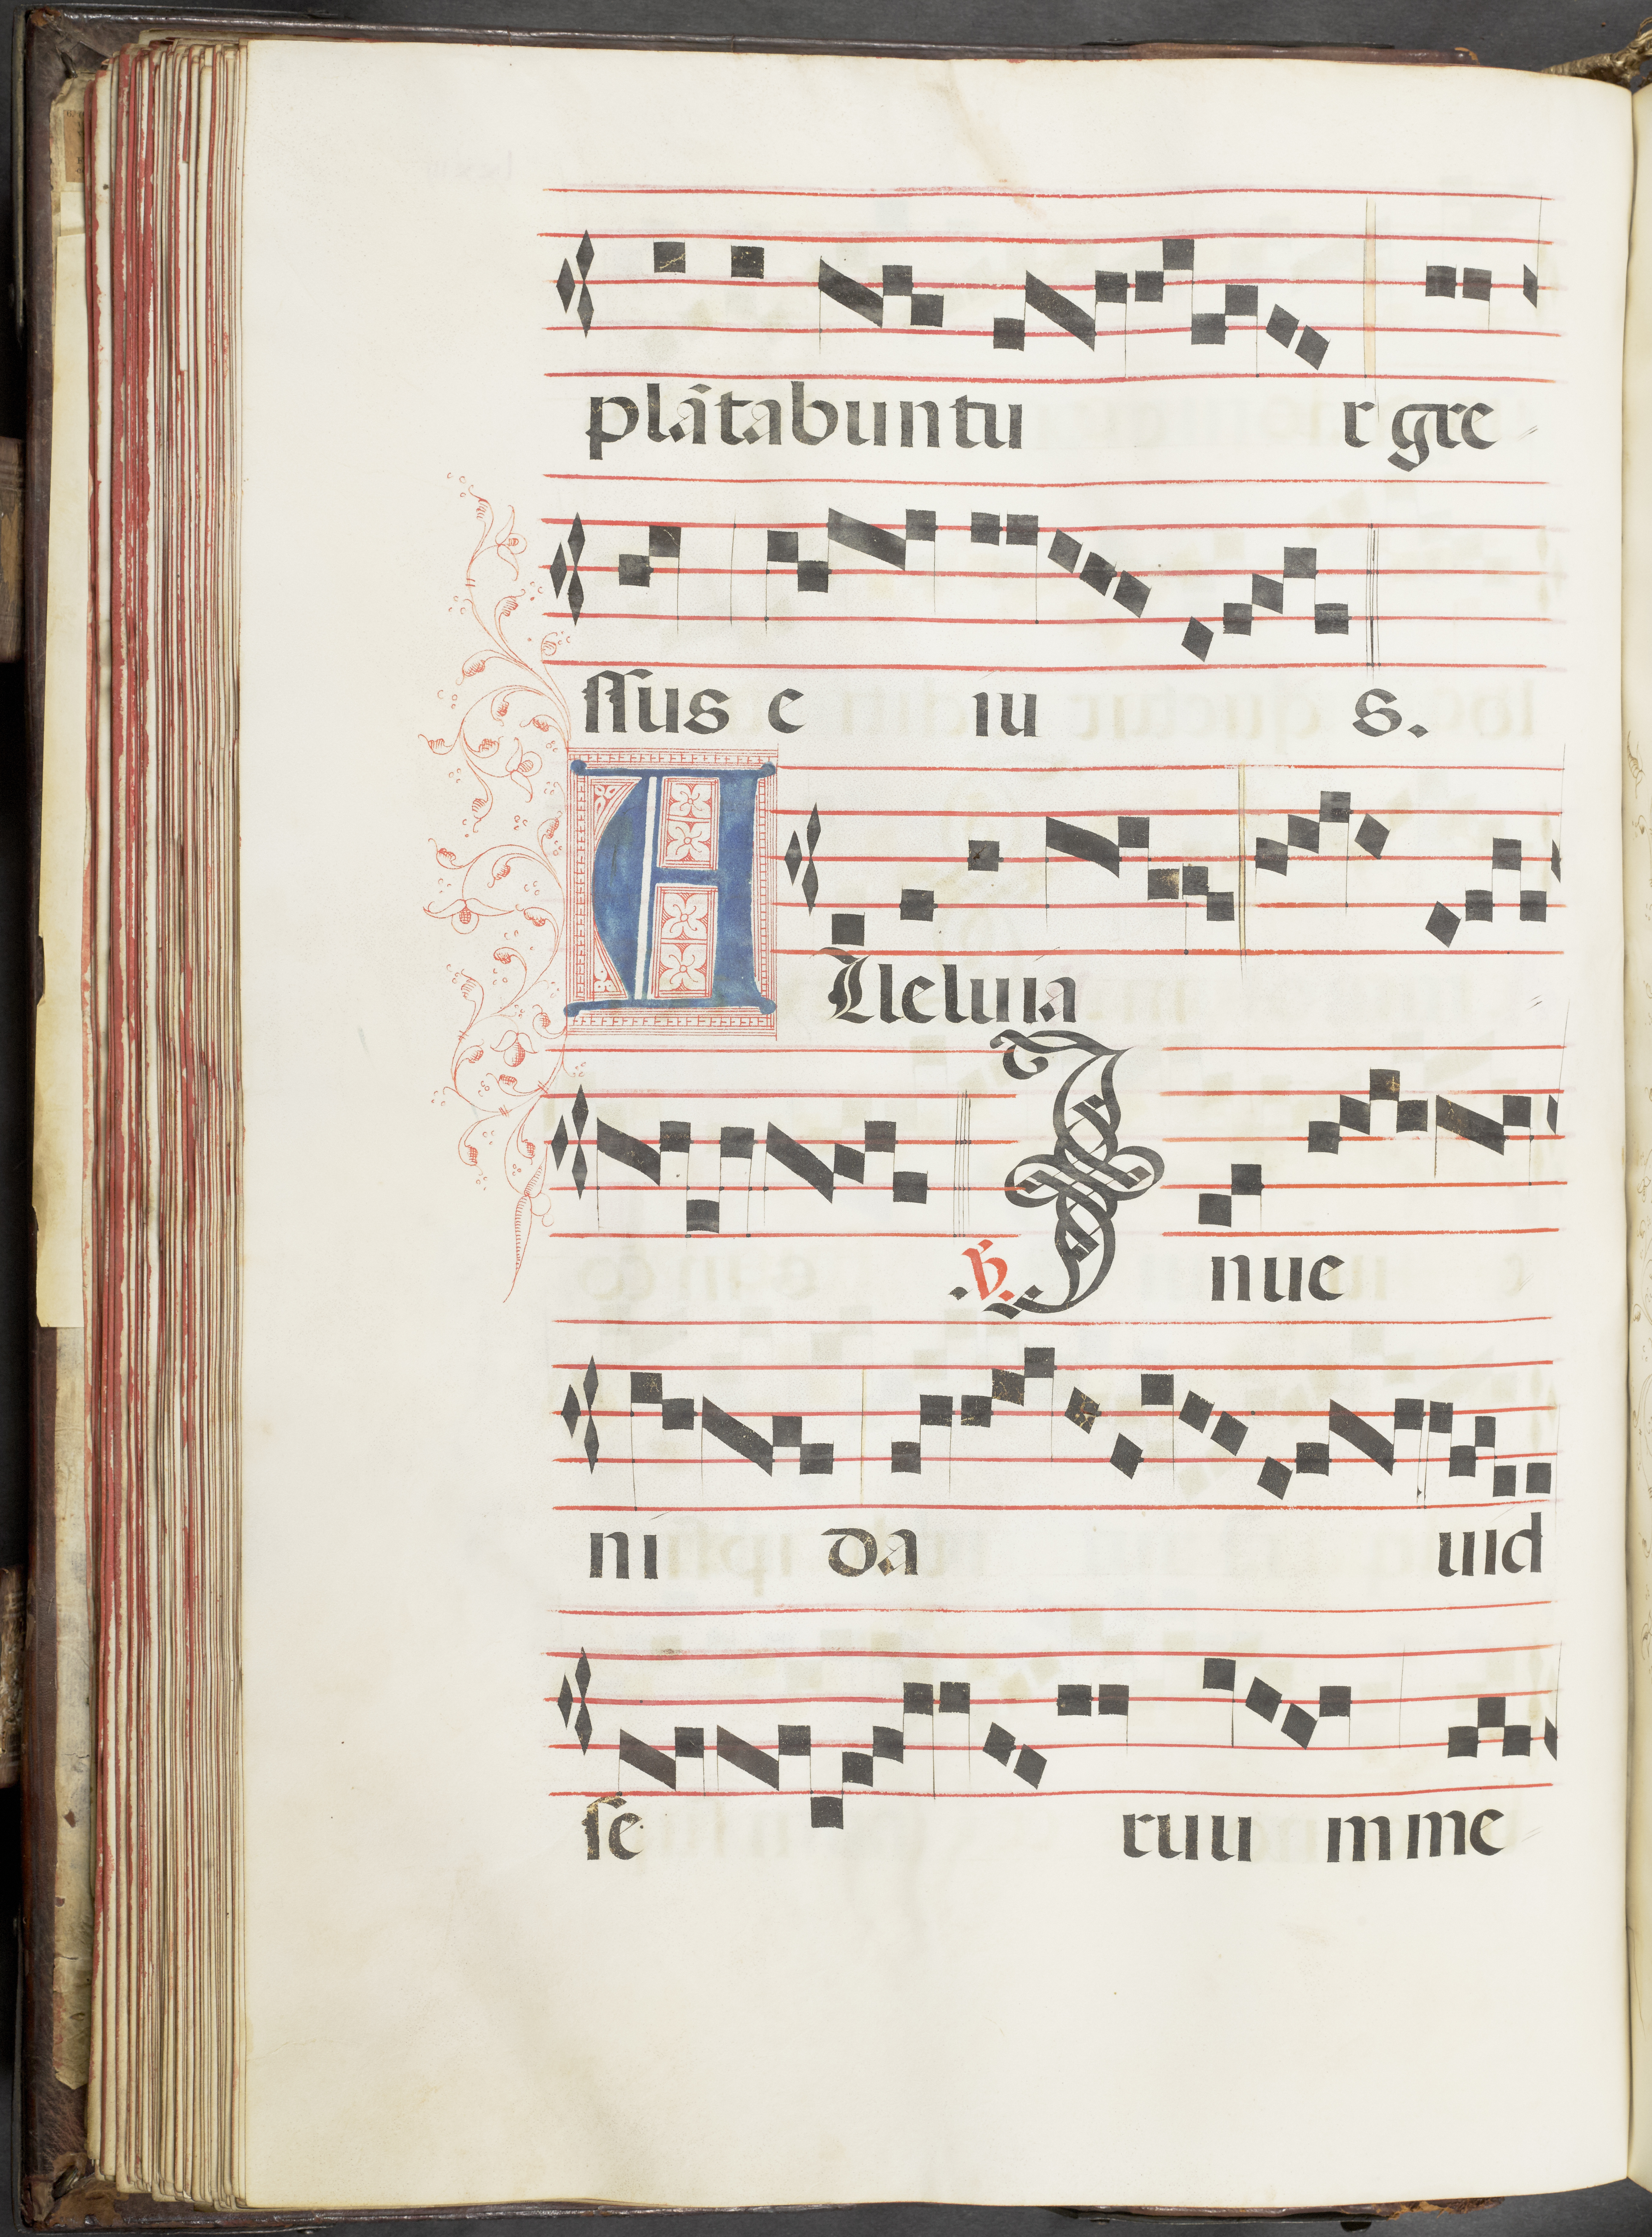 plãtabuntu r gre
ssus e iu s.
Alleluia
.℣. I nue
ni da uid
se ruu mme